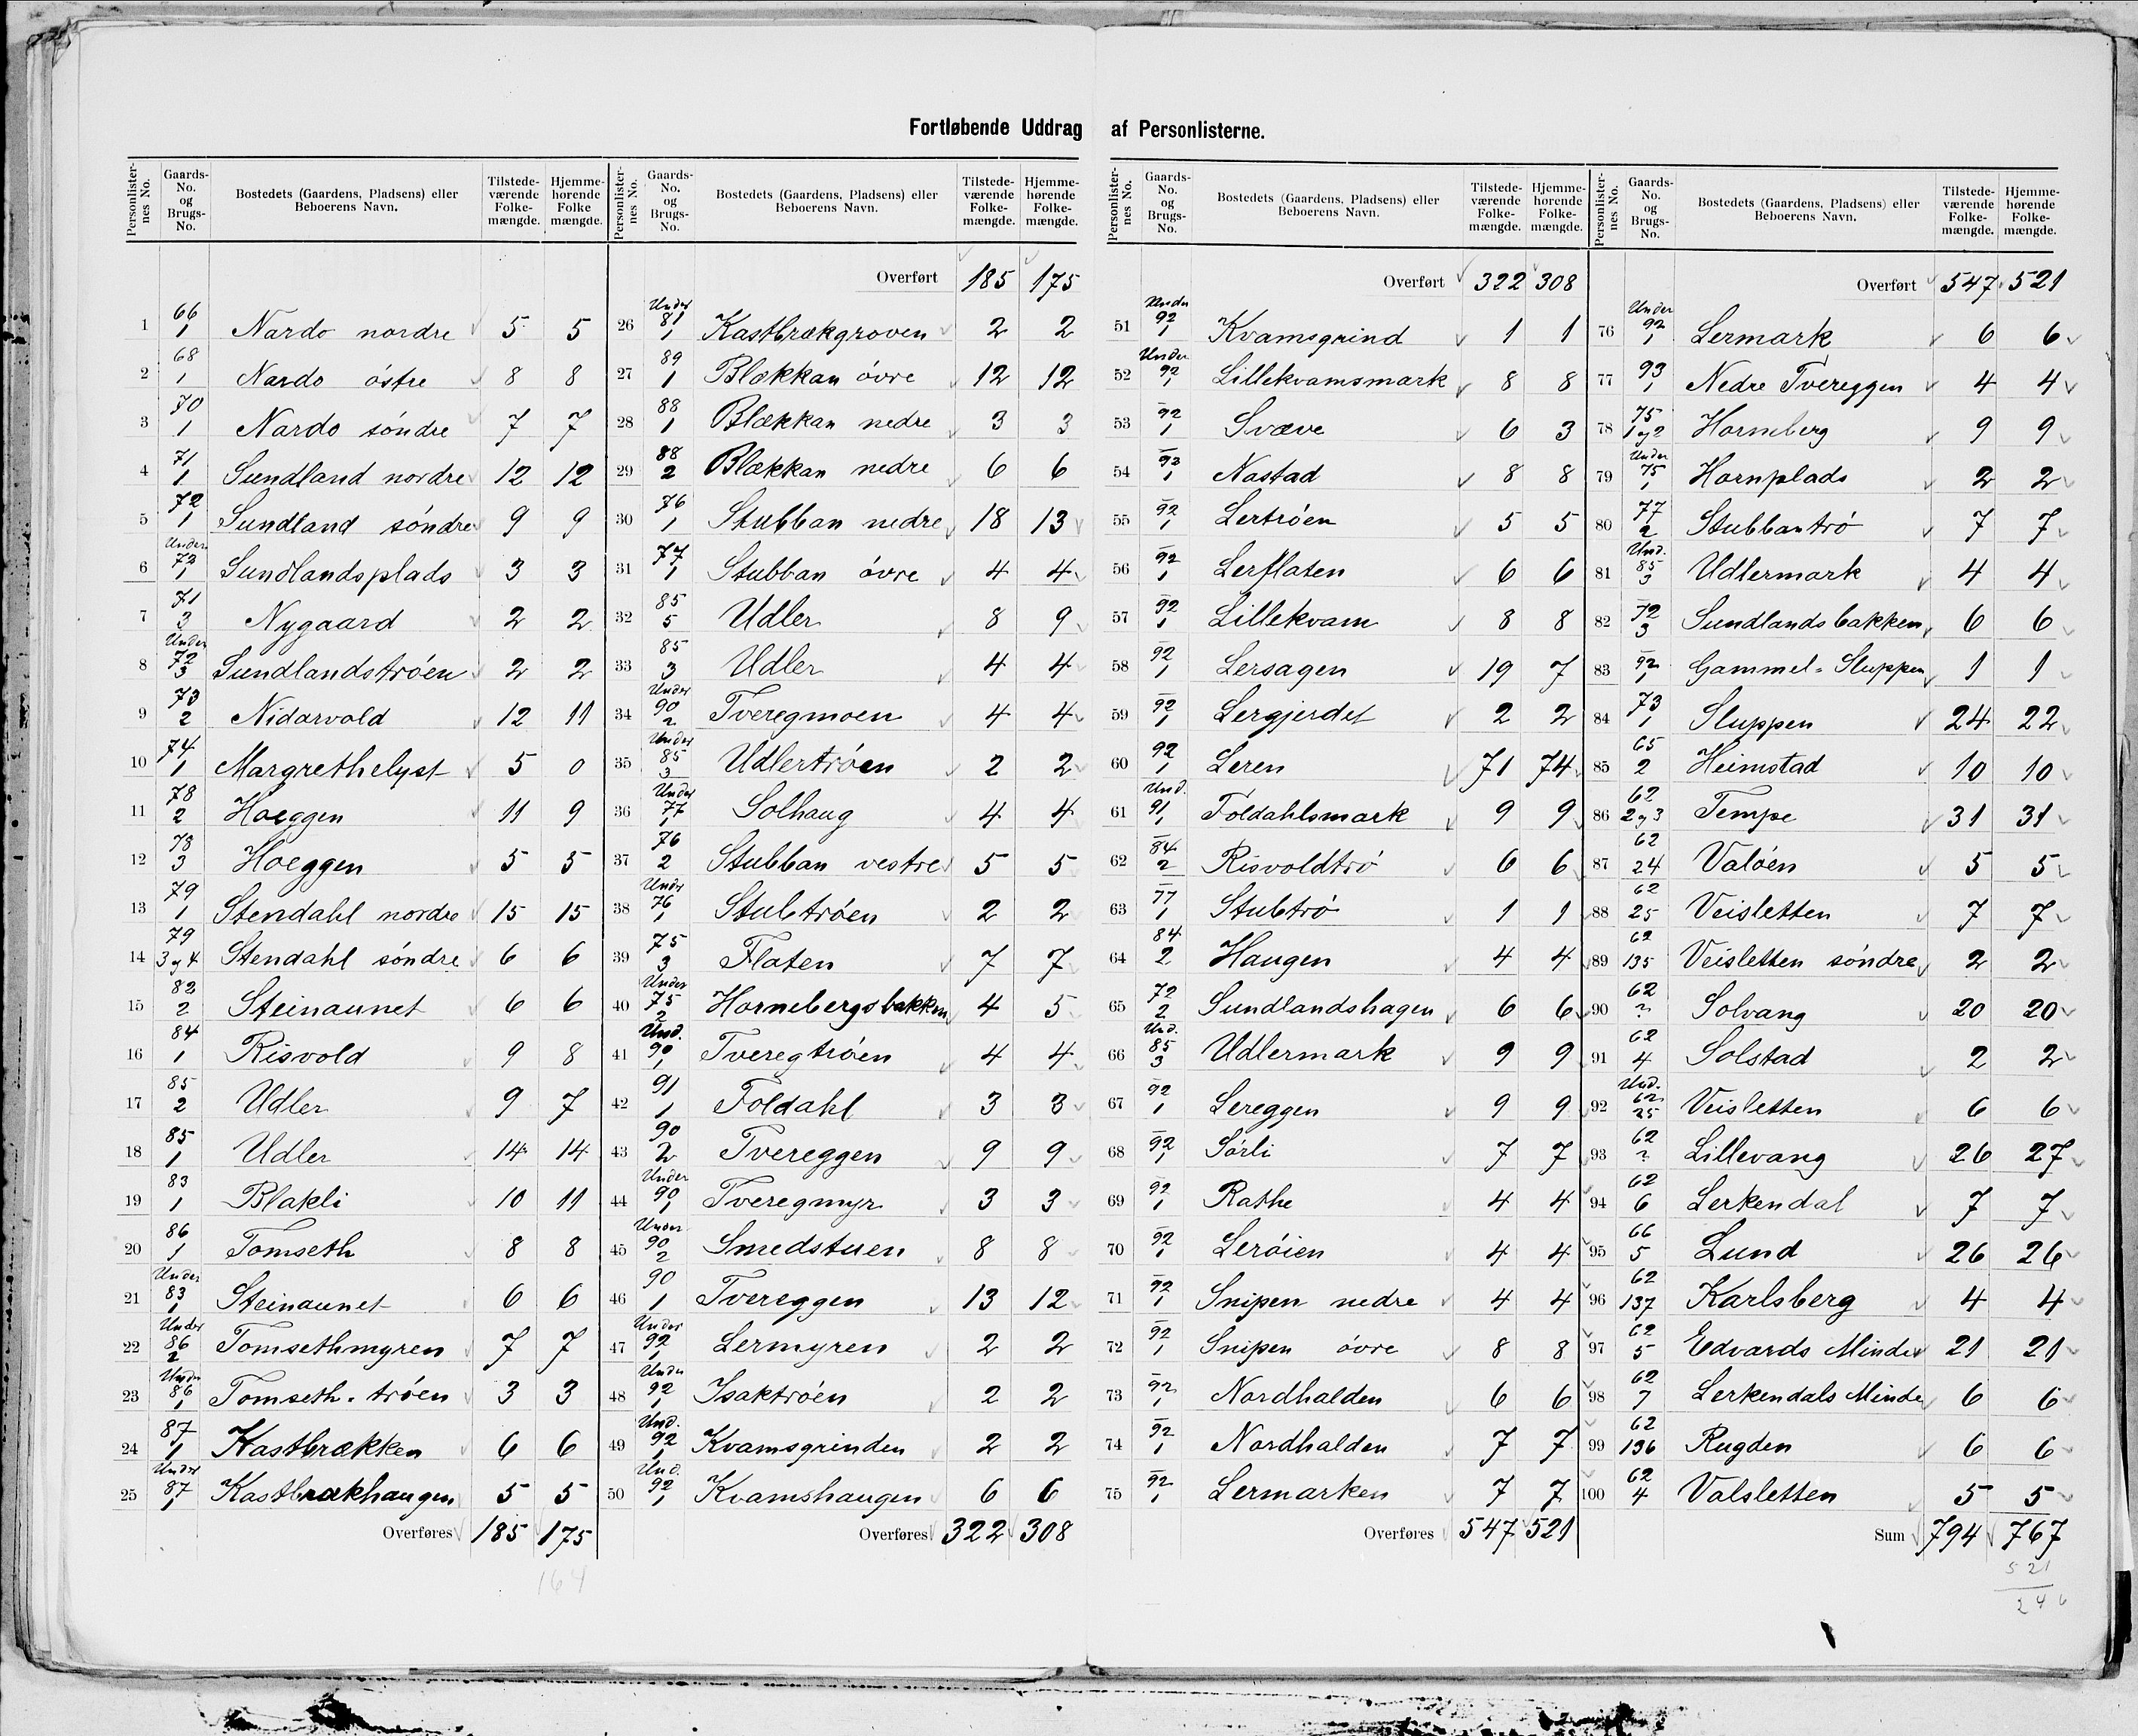 Fortløbende Uddrag af Personlisterne.
Personlisternes No. | Gaards-No. og Brugs-No. | Bostedets (Gaardens, Pladsens) eller Beboerens Navn. | Tilstedeværende Folkemængde. | Hjemmehørende Folkemængde.
1 66/1 Nardo nordre 5 5
2 68/1 Nardo östre 8 8
3 70/1 Nardo söndre 7 7
4 71/1 Sundland nordre 12 12
5 72/1 Sundland söndre 9 9
6 Under 72/1 Sundlandsplads 3 3
7 71/3 Nygaard 2 2
8 Under 72/3 Sundlandströen 2 2
9 73/2 Nidarvold 12 11
10 74/1 Margrethelyst 5 0
11 78/2 Hoeggen 11 9
12 78/3 Hoeggen 5 5
13 79/1 Stendahl nordre 15 15
14 79/3 og 4 Stendahl söndre 6 6
15 82/2 Steinaunet 6 6
16 84/1 Risvold 9 8
17 85/2 Udler 9 7
18 85/1 Udler 14 14
19 83/1 Blakli 10 11
20 86/1 Tomseth 8 8
21 Under 83/1 Steinaunet 6 6
22 Under 86/2 Tomsethmyren 7 7
23 Under 86/1 Tomseth-tröen 3 3
24 87/1 Kastbrækken 6 6
25 Under 87/1 Kastbrækhaugen 5 5
Overføres 185 175
164
Personlisternes No. | Gaards-No. og Brugs-No. | Bostedets (Gaardens, Pladsens) eller Beboerens Navn. | Tilstedeværende Folkemængde. | Hjemmehørende Folkemængde.
Overført 185 175
26 Under 81/1 Kastbrækgroven 2 2
27 89/1 Blækkan övre 12 12
28 88/1 Blækkan nedre 3 3
29 88/2 Blækkan nedre 6 6
30 76/1 Stubban nedre 18 13
31 77/1 Stubban övre 4 4
32 85/5 Udler 8 9
33 85/3 Udler 4 4
34 Under 90/2 Tveregmoen 4 4
35 Under 85/3 Udlertröen 2 2
36 Under 77/1 Solhaug 4 4
37 76/2 Stubban vestre 5 5
38 Under 76/1 Stubtröen 2 2
39 75/3 Flaten 7 7
40 Under 75/2 Hornebergsbakken 4 5
41 Und. 90/1 Tveregtröen 4 4
42 91/1 Foldahl 3 3
43 90/2 Tvereggen 9 9
44 Under 90/1 Tveregmyr 3 3
45 Under 90/2 Smedstuen 8 8
46 90/1 Tvereggen 13 12
47 Under 92/1 Lermyren 2 2
48 Under 92/1 Isaktröen 2 2
49 Und. 92/1 Kvamsgrinden 2 2
50 Und. 92/1 Kvamshaugen 6 6
Overføres 322 308
Personlisternes No. | Gaards-No. og Brugs-No. | Bostedets (Gaardens, Pladsens) eller Beboerens Navn. | Tilstedeværende Folkemængde. | Hjemmehørende Folkemængde.
Overført 322 308
51 Under 92/1 Kvamsgrind 1 1
52 Under 92/1 Lillekvamsmark 8 8
53 92/1 Svæve 6 3
54 92/1 Nastad 8 8
55 92/1 Lertröen 5 5
56 92/1 Lerflaten 6 6
57 92/1 Lillekvam 8 8
58 92/1 Lersagen 19 7
59 92/1 Lergjerdet 2 2
60 92/1 Leren 71 74
61 Und. 91/1 Foldahlsmark 9 9
62 84/2 Risvoldtrö 6 6
63 77/1 Stubtrö 1 1
64 84/2 Haugen 4 4
65 72/2 Sundlandshagen 6 6
66 Und. 85/3 Udlermark 9 9
67 92/1 Lereggen 9 9
68 92/1 Sörli 7 7
69 92/1 Rathe 4 4
70 92/1 Leröien 4 4
71 92/1 Snipen nedre 4 4
72 92/1 Snipen övre 8 8
73 92/1 Nordhalden 6 6
74 92/1 Nordhalden 7 7
75 92/1 Lermarken 7 7
Overføres 547 521
Personlisternes No. | Gaards-No. og Brugs-No. | Bostedets (Gaardens, Pladsens) eller Beboerens Navn. | Tilstedeværende Folkemængde. | Hjemmehørende Folkemængde.
Overført 547 521
76 Under 92/1 Lermark 6 6
77 93/1 Nedre Tvereggen 4 4
78 75/1 og 2 Horneberg 9 9
79 Under 75/1 Hornplads 2 2
80 77/2 Stubbantrö 7 7
81 Und. 85/3 Udlermark 4 4
82 72/3 Sundlandsbakken 6 6
83 92/1 Gammel-Sluppen 1 1
84 73/1 Sluppen 24 22
85 65/2 Heimstad 10 10
86 62/2 og 3 Tempe 31 31
87 62/24 Valöen 5 5
88 62/25 Veisletten 7 7
89 62/135 Veisletten söndre 2 2
90 62/? Solvang 20 20
91 62/4 Solstad 2 2
92 Und. 62/25 Veisletten 6 6
93 62/? Lillevang 26 27
94 62/6 Lerkendal 7 7
95 66/5 Lund 26 26
96 62/137 Karlsberg 4 4
97 62/5 Edvards Minde 21 21
98 62/7 Lerkendals Minde 6 6
99 62/136 Rugden 6 6
100 62/4 Valsletten 5 5
Sum 794 767
521
246